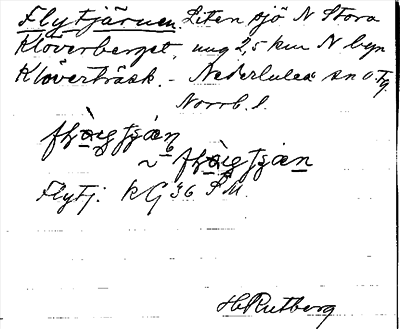 Flytjärnen. Liten sjö N Stora
Klöverberget, ung 2,5 km N byn
Klöverträsk. - Nederluleå sn o. Fg.
Norrb. l.
Flytj. KG 36 SM
H. Rutberg